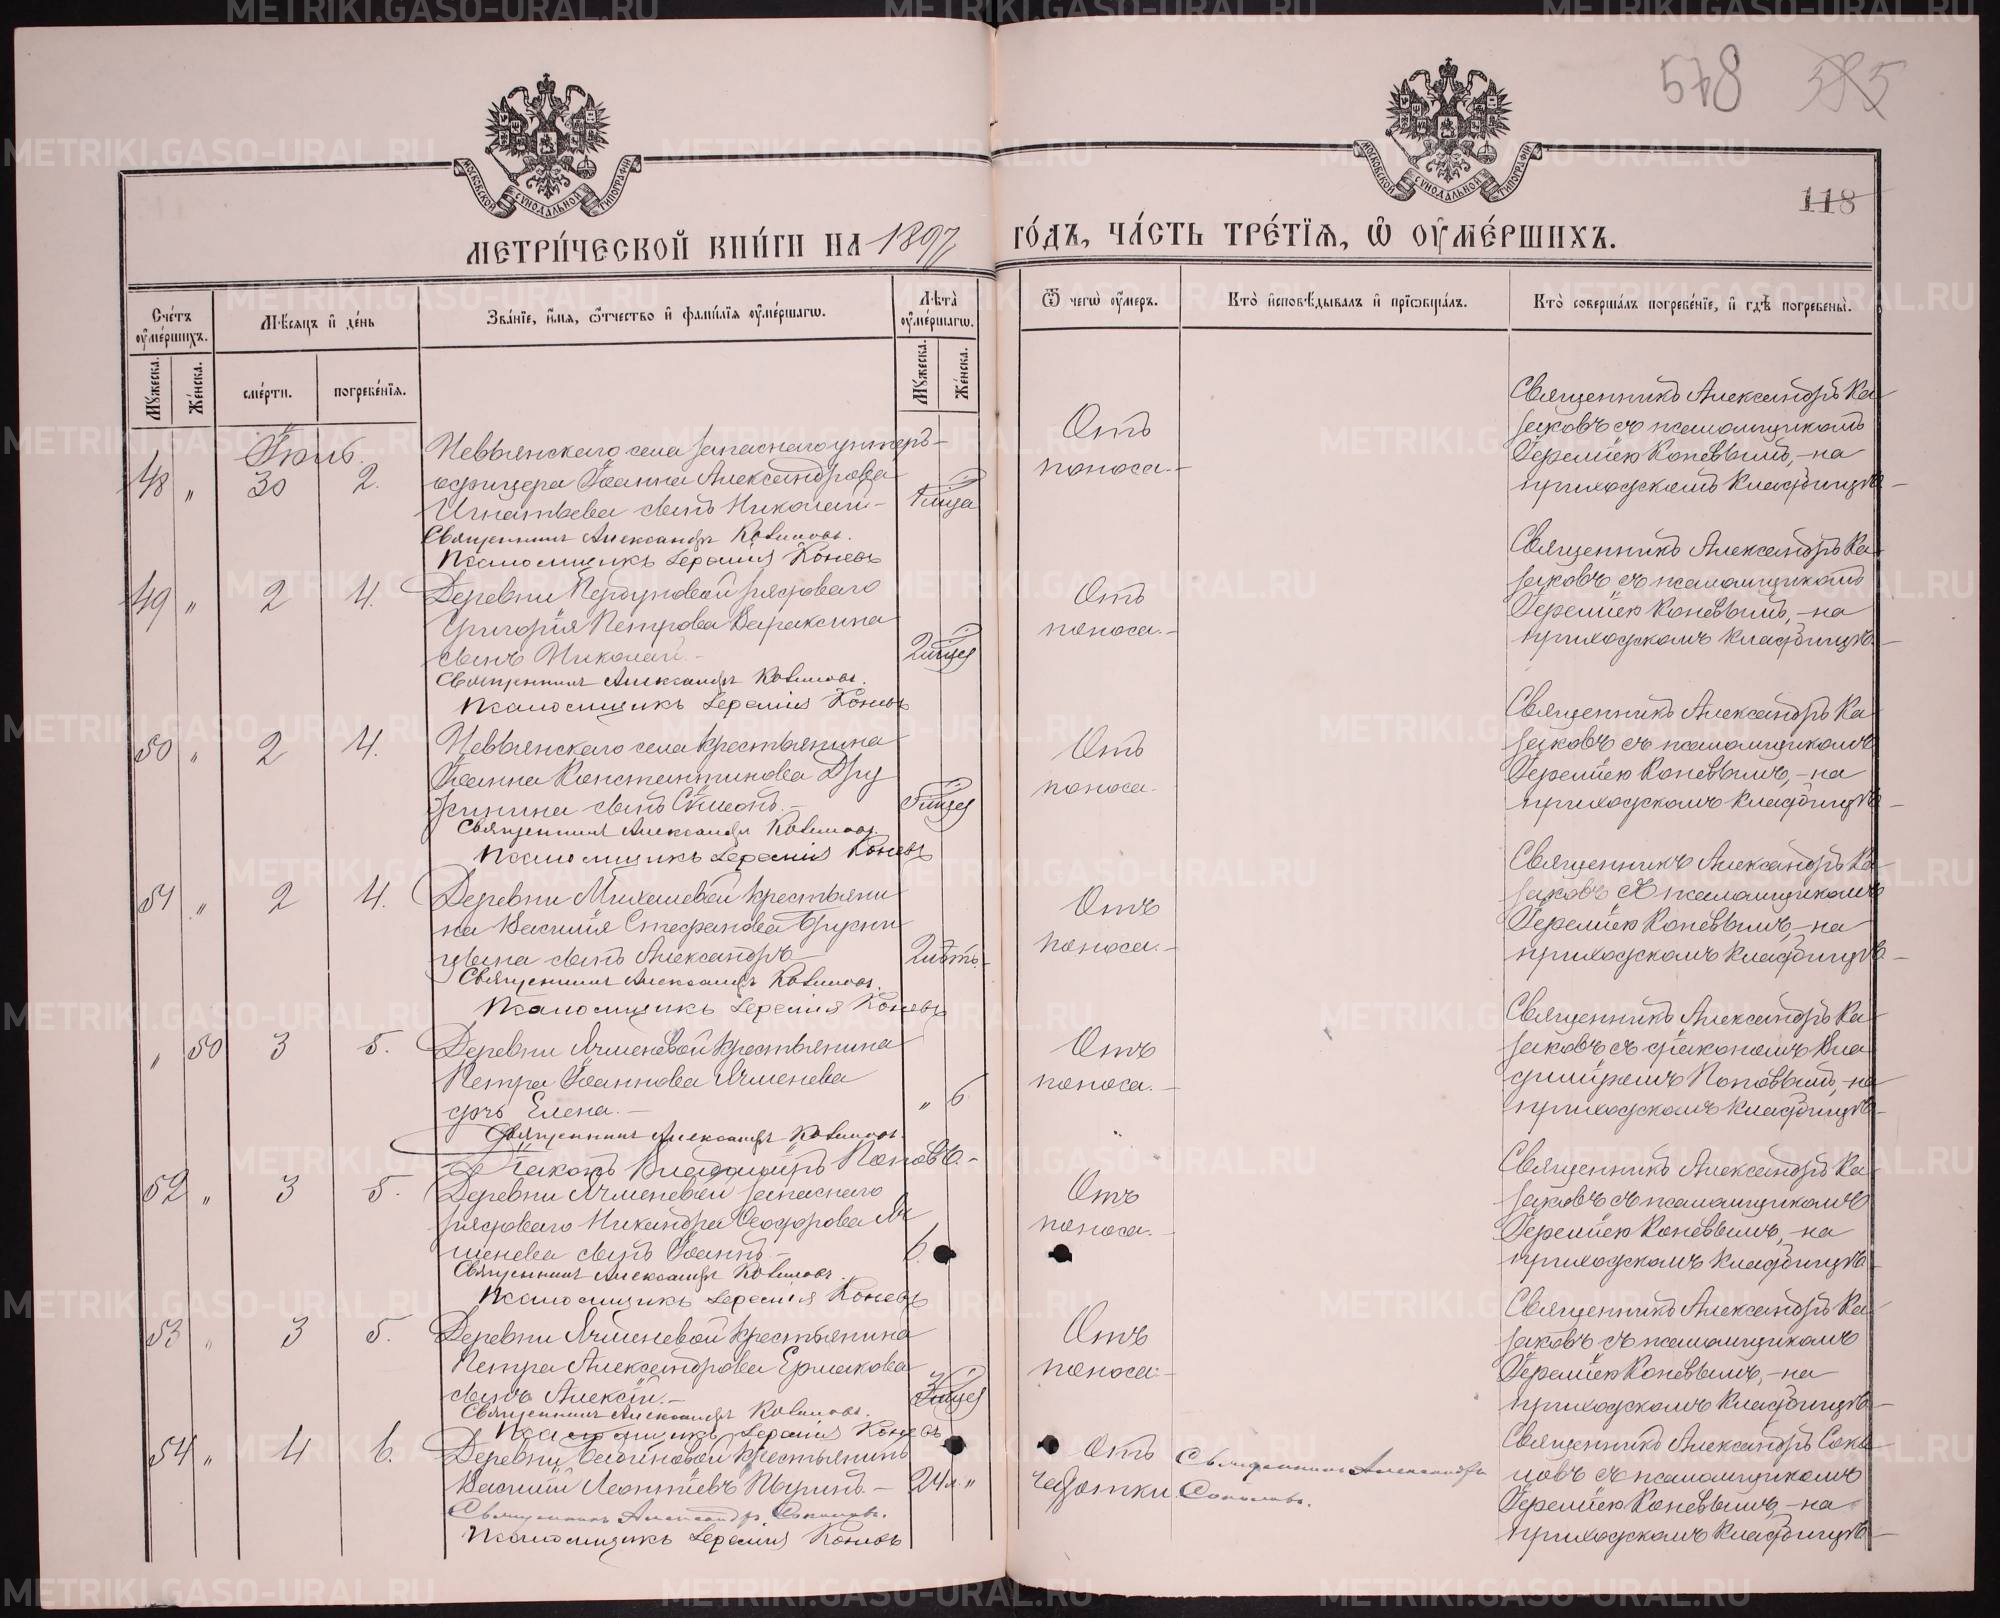 578
118
МОСКОВСКОЙ СѴНОДАЛЬНОЙ ТИПОГРАФІИ
МОСКОВСКОЙ СѴНОДАЛЬНОЙ ТИПОГРАФІИ
МЕТРИ́ЧЕСКОЙ КНИ́ГИ НА 1897 ГО́ДЪ, ЧА́СТЬ ТРЕ́ТІЯ, Ѡ ОУМЕ́РШИХЪ.
Сче́тъ оумершихъ.
Мужеска.
Же́нска.
Мѣсяцъ и де́нь
сме́рти.
погребе́нїя.
Зва́нїе, и́мя, ѻ҆́тчество и фами́лїя оумершагѡ.
Лѣта̀ оумершагѡ.
Мужеска.
Же́нска.
Ѿ чегѡ̀ оумеръ.
Кто̀ исповѣ́дывалъ и прїѡбща́лъ.
Кто̀ соверша́лъ погребе́нїе, и гдѣ̀ погребены̀.
Іюль.
48 " 30 2.
Невьянскаго села запаснаго унтеръ-
офицера Іоанна Александрова
Игнатьева сынъ Николай -
Священникъ Александръ Казаковъ.
Псаломщикъ Іеремія Коневъ
Отъ
поноса.-
Священникъ Александръ Ка-
заковъ съ псаломщикомъ
Іереміею Коневымъ, - на
приходскомъ кладбищѣ -
49 " 2 4.
Деревни рядоваго
Григорія Петрова Вараксина
сынъ Николай.-
2 мѣсяц.
Священникъ Александръ Казаковъ.
Псаломщикъ Іеремія Коневъ
Отъ
поноса.-
Священникъ Александръ Ка-
заковъ съ псаломщикомъ
Іереміею Коневымъ, - на
приходскомъ кладбищѣ.-
50 " 2 4.
Невьянскаго села крестьянина
Іоанна Константинова Дру
жинина сынъ Сѷмеонъ.-
Священникъ Александръ Казаковъ.
Псаломщикъ Іеремія Коневъ
Отъ
поноса.
Священникъ Александръ Ка-
заковъ съ псаломщикомъ
Іереміею Коневымъ, - на
приходскомъ кладбищѣ -
51 " 2 4.
Деревни Михалевой крестьяни
на Василія Стефанова Брусни
цына сынъ Александръ -
2 лѣтъ.
Священникъ Александръ Казаковъ.
Псаломщикъ Іеремія Коневъ
Отъ
поноса.-
Священникъ Александръ Ка-
заковъ съ псаломщикомъ
Іереміею Коневымъ, - на
приходскомъ кладбищѣ -
" 50 3 5.
Деревни Ячменевой крестьянина
Петра Іоаннова Ячменева
дочь Елена.-
" 6
Священникъ Александръ Казаковъ.
Діаконъ Владиміръ Поповъ.-
Отъ
поноса.-
Священникъ Александръ Ка-
заковъ съ діакономъ Вла-
диміромъ Поповымъ, - на
приходскомъ кладбищѣ -
52 " 3 5.
Деревни Ячменевой запаснаго
рядоваго Никандра Ѳеодорова Яч
менева сынъ Іоаннъ -
6.
Священникъ Александръ Казаковъ.
Псаломщикъ Іеремія Коневъ
Отъ
поноса.-
Священникъ Александръ Ка-
заковъ съ псаломщикомъ
Іереміею Коневымъ, - на
приходскомъ кладбищѣ -
53 " 3 5.
Деревни Ячменевой крестьянина
Петра Александрова Ермакова
сынъ Алексій.-
Священникъ Александръ Казаковъ.
Псаломщикъ Іеремія Коневъ
Отъ
поноса.-
Священникъ Александръ Ка-
заковъ съ псаломщикомъ
Іереміею Коневымъ, - на
приходскомъ кладбищѣ -
54 " 4 6.
Деревни крестьянинъ
Василій Леонтіевъ -
24 л. "
Священникъ Александръ Соколовъ.
Псаломщикъ Іеремія Коневъ
Отъ
чахотки
Священникъ Александръ
Соколовъ.
Священникъ Александръ Соко
ловъ съ псаломщикомъ
Іереміею Коневымъ, - на
приходскомъ кладбищѣ -
METRIKI.GASO-URAL.RU